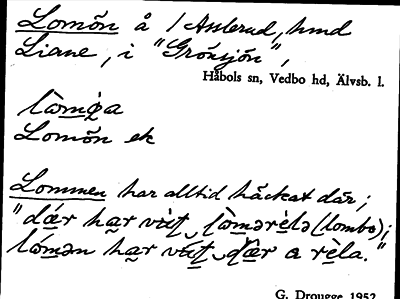 Lomön å / Assterud, hmd
Liane, i "Grönsjön",
Håbols sn, Vedbo hd, Älvsb. l.
Lomön ek
Lommen har alltid häckat där;
"dær har vàt lòmərèlə (lombo);
lómən har vàt dær a rèla."
G. Drougge 1952